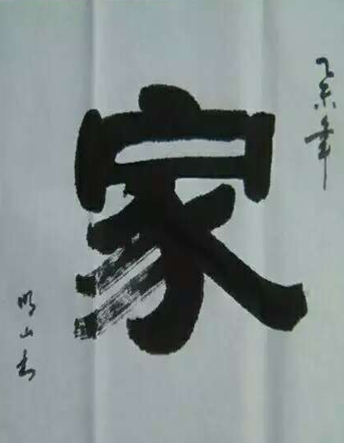 乙未年
家
明山书